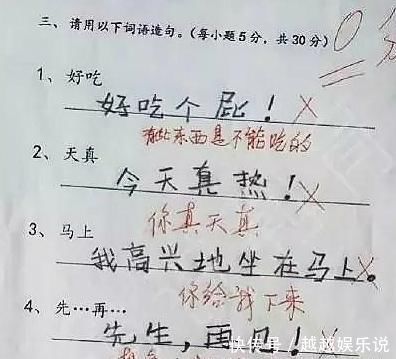 三、请用以下词语造句。(每小题5分,共30分) 0分
1、好吃
好吃个屁!
有些东西是不能吃的
2、天真
今天真热!
你真天真
3、马上
我高兴地坐在马上。
你给我下来
4、先…再…
先生,再见!
快传号/越越娱乐说